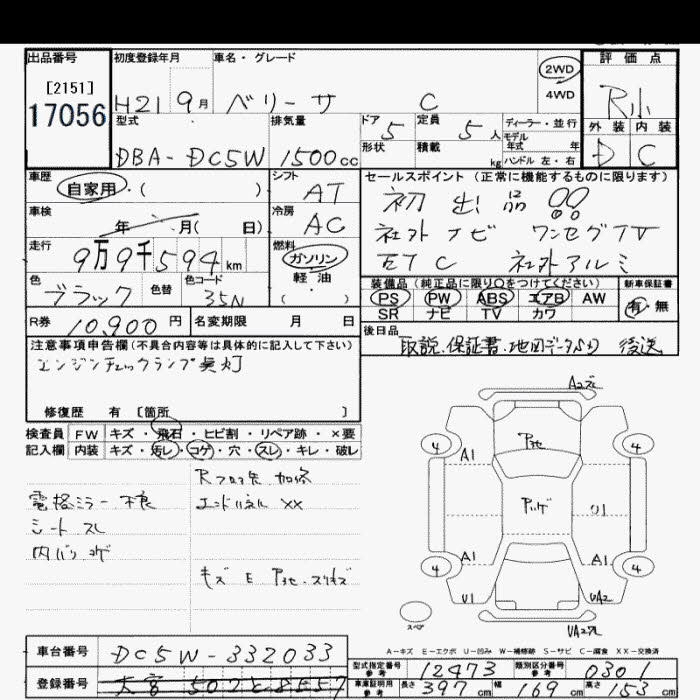 出品番号 初度登録年月 車名・グレード 評価点
[2151] 2WD
17056 H21 9月 ベリーサ C 4WD R小
型式 排気量 ドア 定員 ディーラー・並行 外装 内装
5 5人 モデル年式 年
DBA-DC5W 1500cc 形状 積載 kg ハンドル 左・右 D C
車歴 シフト セールスポイント(正常に機能するものに限ります)
自家用・( ) AT 初出品!!
車検 冷房 社外ナビ ワンセグTV
年 月( 日) AC ETC 社外アルミ
走行 燃料
9万9千594km ガソリン 装備品(純正品に限り○をつけてください) 新車保証書
色 色替 色コード 軽・油 PS PW ABS エアB AW 有・無
ブラック 35N ( ) SR ナビ TV カワ
R券 10,900円 名変期限 月 日 後日品
注意事項申告欄(不具合内容等は具体的に記入して下さい) 取説.保証書.地図データSD 後送
エンジンチェックランプ点灯
修復歴 有 [箇所 ]
検査員 FW キズ・飛石・ヒビ割・リペア跡・×要
記入欄 内装 キズ・汚レ・コゲ・穴・スレ・キレ・破レ
電格ミラー不良 エンドパネルXX
シートスレ
内バリコゲ
キズ E
4 A1 4
U1
4 A1 A1 4
U1 UA2
スペア
A-キズ E-エクボ U-凹み W-補修跡 S-サビ C-腐食 XX-交換済
車台番号 DC5W-332033
型式指定番号 参考 12473 類別区分番号 参考 0301
登録番号
車庫証明用 参考 長さ 397cm 幅 169cm 高さ 153cm